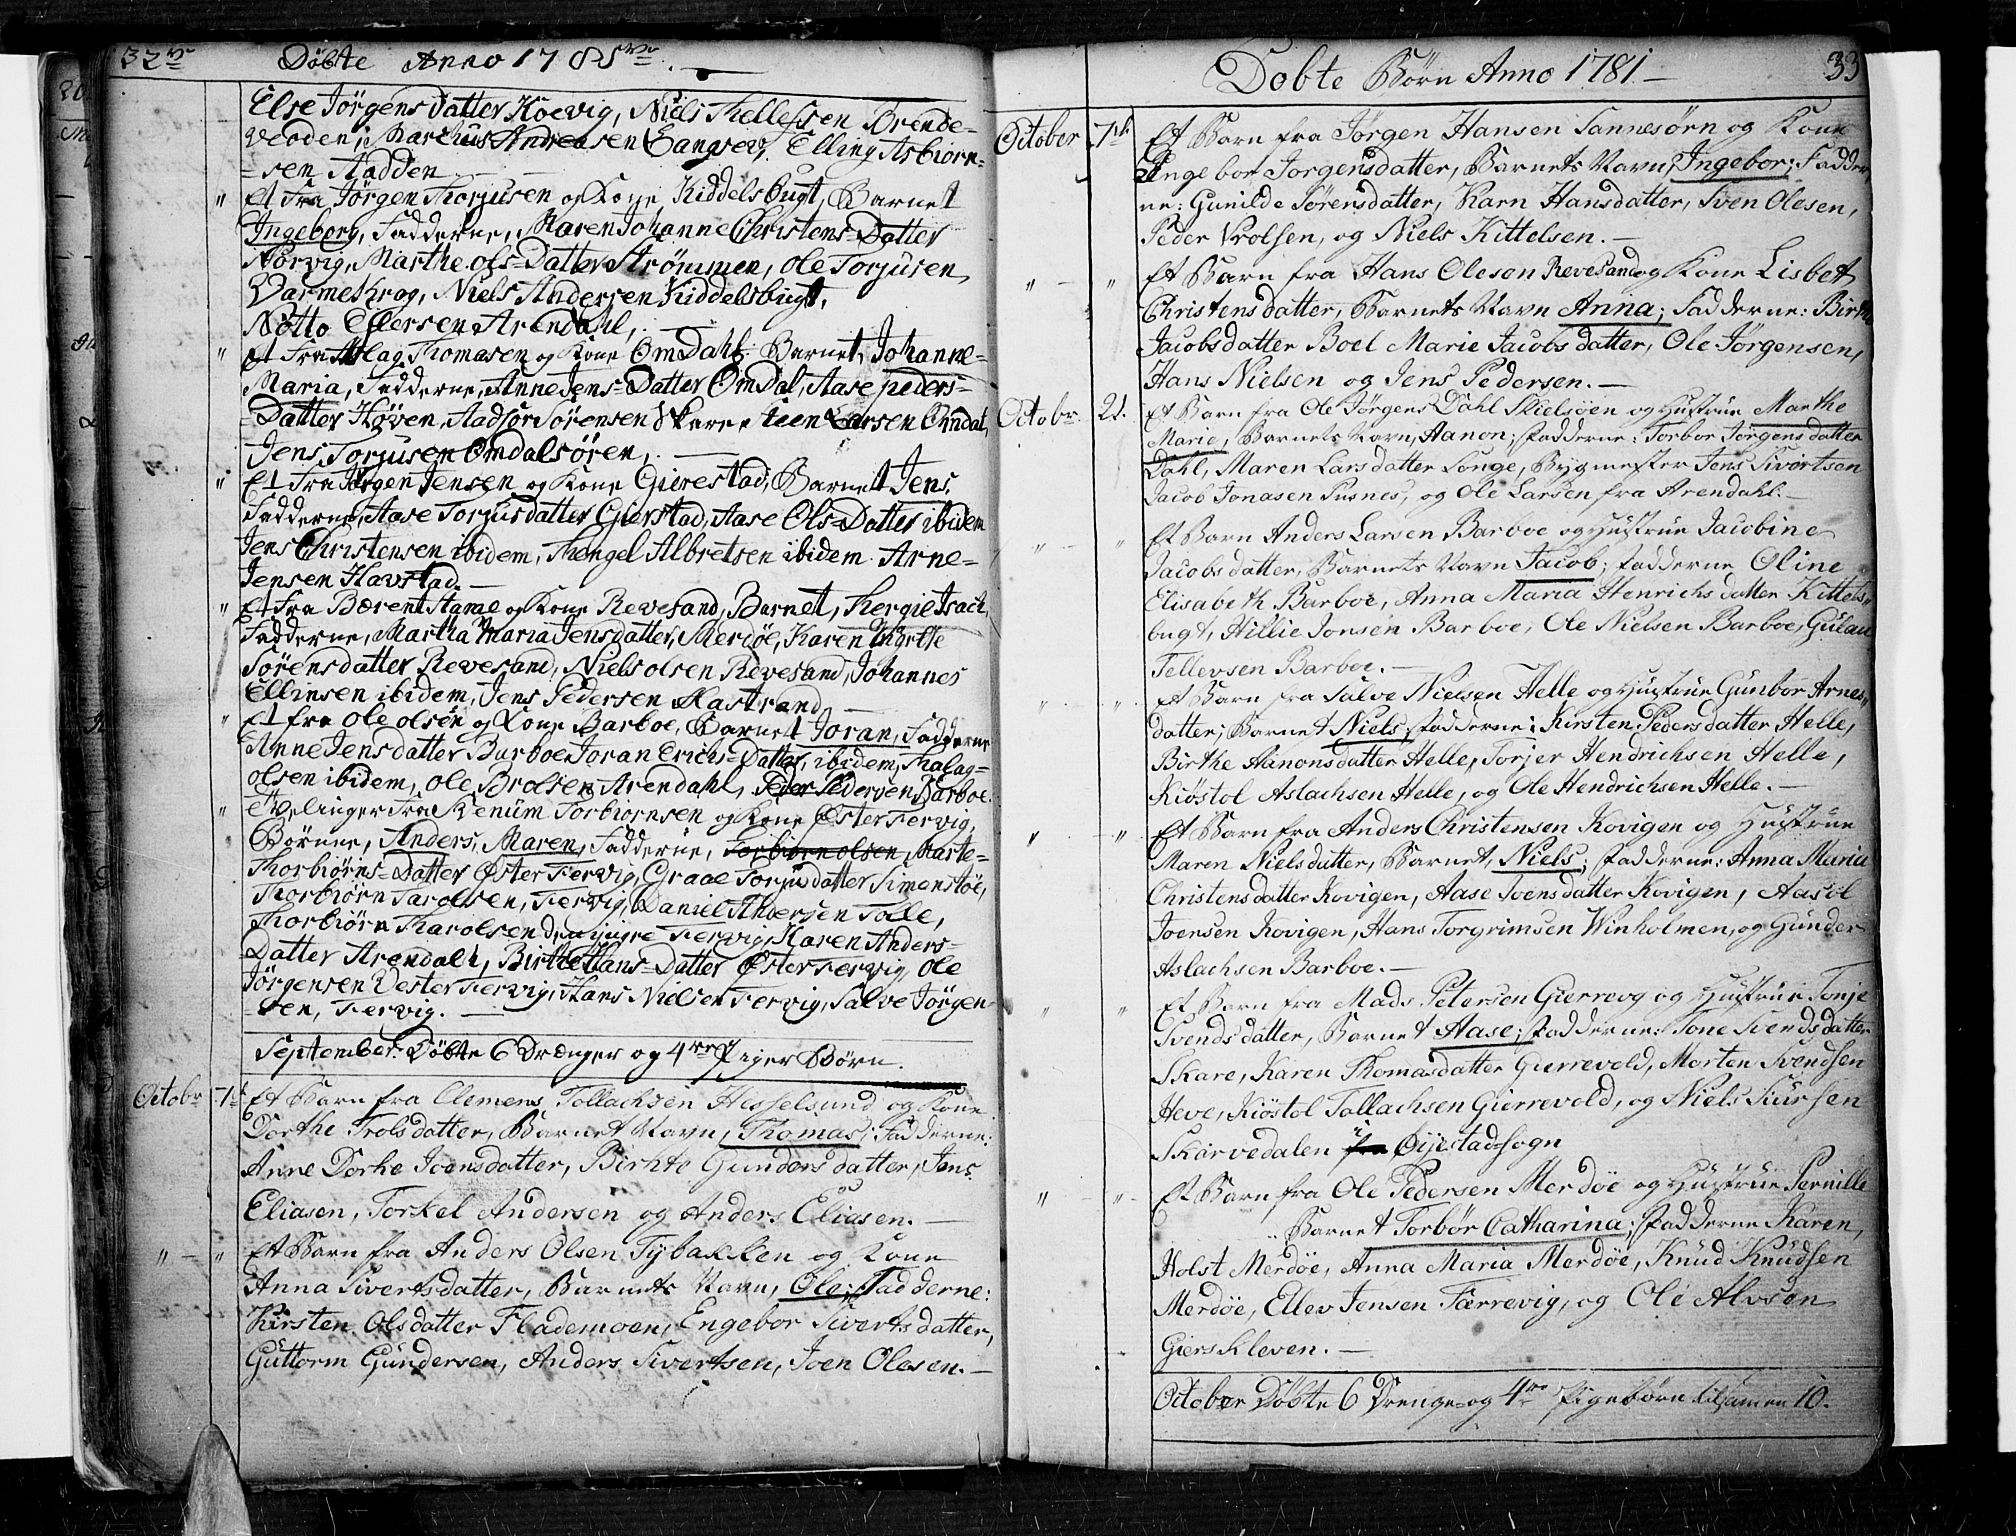 32
Döbte Anno 1781
Else Jörgens Datter Hoevig, Niels Thellefsen Brende-
vedden, Marchus Andreasen Langsev, Elling Asbiörn-
=sen Aadden
" Et Fra Jörgen Thorjusen og Kone Kiddelsbugt, Barnet
Ingeborg, Fadderne, Maren Johanne Christens=Datter
Norvig, Marthe Ols=Datter Strömmen, Ole Torjusen
Varmekrog, Niels Andersen Kiddelsbugt,
Notto Ellersen Arendahl,
" Et Fra Aslag Thomasen og Kone Omdahl. Barnet, Johanne-
Maria, Fadderne, Anne Jens=Datter Omdal, Aase peders=
=Datter Höven, Aadsör Sörensen Skaree Larsen Omdal,
Jens Torjusen Omdalsören,
" Et Fra Jörgen Jensen og Kone Gierestad, Barnet Jens,
Fadderne, Aase Torjusdatter Gierstad, Aase Ols=Datter ibidem
Jens Christensen ibidem, Thengel Albretsen ibidem. Arne-
Jensen Havstad.
" Et Fra Bærent Aamae og Kone Revesand, Barnet, Thergie Isach,
Fadderne, Martha Maria Jensdatter, Merdöe, Karen Mÿrthe
Sörensdatter Revesand, Niels olsen Revesand, Johannes
Ellinsen ibidem, Jens Pedersen Hastrand
" Et fra Ole olsen og Kone Barboe, Barnet Joran, Fadderne
Anne Jensdatter Barboe, Joran Erichs=Datter, ibidem, Thalag-
olsen ibidem, Ole Brolsen Arendahl, Peder Pedersen Barboe.
" Tvelinger Fra Venüm Torbiornsen og Kone Öster Fervig,
Börnene, Anders, Maren, Fadderne, Torbiörn olsen, Marte-
Thorbiörns=Datter Öster Fervig, Graae Torjusdatter Simenstöe,
Thorbiörn Tarolsen, Fervig, Daniel Andersen Tolle,
Thorbiörn Tharolsen den yngre Fervig, Karen Anders-
Datter Arendahl, Birthe Hans=Datter Öster Fervig, Ole
Jörgensen Vester Fervig, Hans Nielsen Fervig, Salve Jörgen-
sen, Fervig.
September: Döbte 6 Drænger og 4re Piger Börn.
Octobr 7de Et Barn fra Clemens Tollachsen Hesselsund og Kone
Dorthe Trolsdatter, Barnet Navn, Thomas; Fadderne:
Anne Dorke Joensdatter, Birhte Gundersdatter, Jens
Eliasen, Torkel Andersen og Anders Eliasen.—
" — " Et Barn fra Anders Olsen Tÿbakken og Kone
Anna Sivertsdatter, Barnets Navn, Ole; Fadderne:
Kirsten Olsdatter Flademoen, Engebor Sivertsdatter,
Guttorm Gündersen, Anders Sivertsen, Joen Olesen.—
Döbte Börn Anno 1781— 33
October 7de Et Barn fra Jörgen Hansen Sannesörn og Kone
Ingebor Jorgensdatter, Barnets Navn, Ingebor; Fadder
ne: Gunilde Sörensdatter, Karn Hansdatter, Sven Olesen,
Peder Vrolsen, og Niels Kittelsen.—
" — " Et Barn fra Hans Olesen Revesand og Kone Lisbet
Christensdatter, Barnets Navn Anna; Fadderne: Birthe
Jacobsdatter Boel Marie Jacobsdatter, Ole Jörgensen,
Hans Nielsen og Jens Pedersen.—
Octobr. 21. Et Barn fra Ole Jörgens Dahl Skielsöen og Hustrue Marthe
Marie, Barnets Navn, Aanon; Fadderne: Torbor Jörgensdatter
Dahl, Maren Larsdatter Songe, Bÿgmester Jens Sivortsen
Jacob Jonasen Susnes, og Ole Larsen fra Arendahl.—
" — " Et Barn Anders Larsen Barboe og Hustrue Jacobine
Jacobsdatter, Barnets Navn Jacob; Fadderne Oline
Elisabeth Barboe, Anna Maria Henrichsdatter Kittels-
bugt, Hillie Jonsen Barboe, Ole Nielsen Barboe, Gulau
Tellevsen Barboe.—
" " Et Barn fra Salve Nielsen Helle og Hustrue Gunbor Arnes-
datter; Barnet Niels; Fadderne: Kirsten Pedersdatter Helle,
Birthe Aanonsdatter Helle, Torjer Hendrichsen Helle,
Kiöstol Aslachsen Helle, og Ole Hendrichsen Helle.—
" — " Et Barn fra Anders Christensen Kovigen og Hustrue
Maren Nielsdatter, Barnet, Niels; Fadderne: Anna Maria
Christensdatter Kovigen, Aase Svensdatter Kovigen, Aasol
Joersen Kovigen, Hans Torgrimsen Winholmen, og Günder
Aslachsen Barboe.—
" " Et Barn fra Mads Petersen Gierrevg og Hustrue Tonje
Svendsdatter, Barnet Aase; Fadderne: Tone Svendsdatter
Skare, Karen Thomasdatter Gierrevold, Morten Svendsen
Heve, Kiöstol Tollachsen Gierrevold, og Niels Siursen
Skarvedalen i Öÿestadsogn
" — " Et Barn fra Ole Pedersen Merdöe og Hustrue Pernille
Barnet Torbör Catharina; Fadderne Karen
Holst Merdöe, Anna Maria Merdöe, Knud Knudsen
Merdöe, Ellev Jensen Færrevig, og Ole Alvsen
Gierskleven.—
October Döbte 6 Drenge og 4re Pigebörn tilsamen 10.